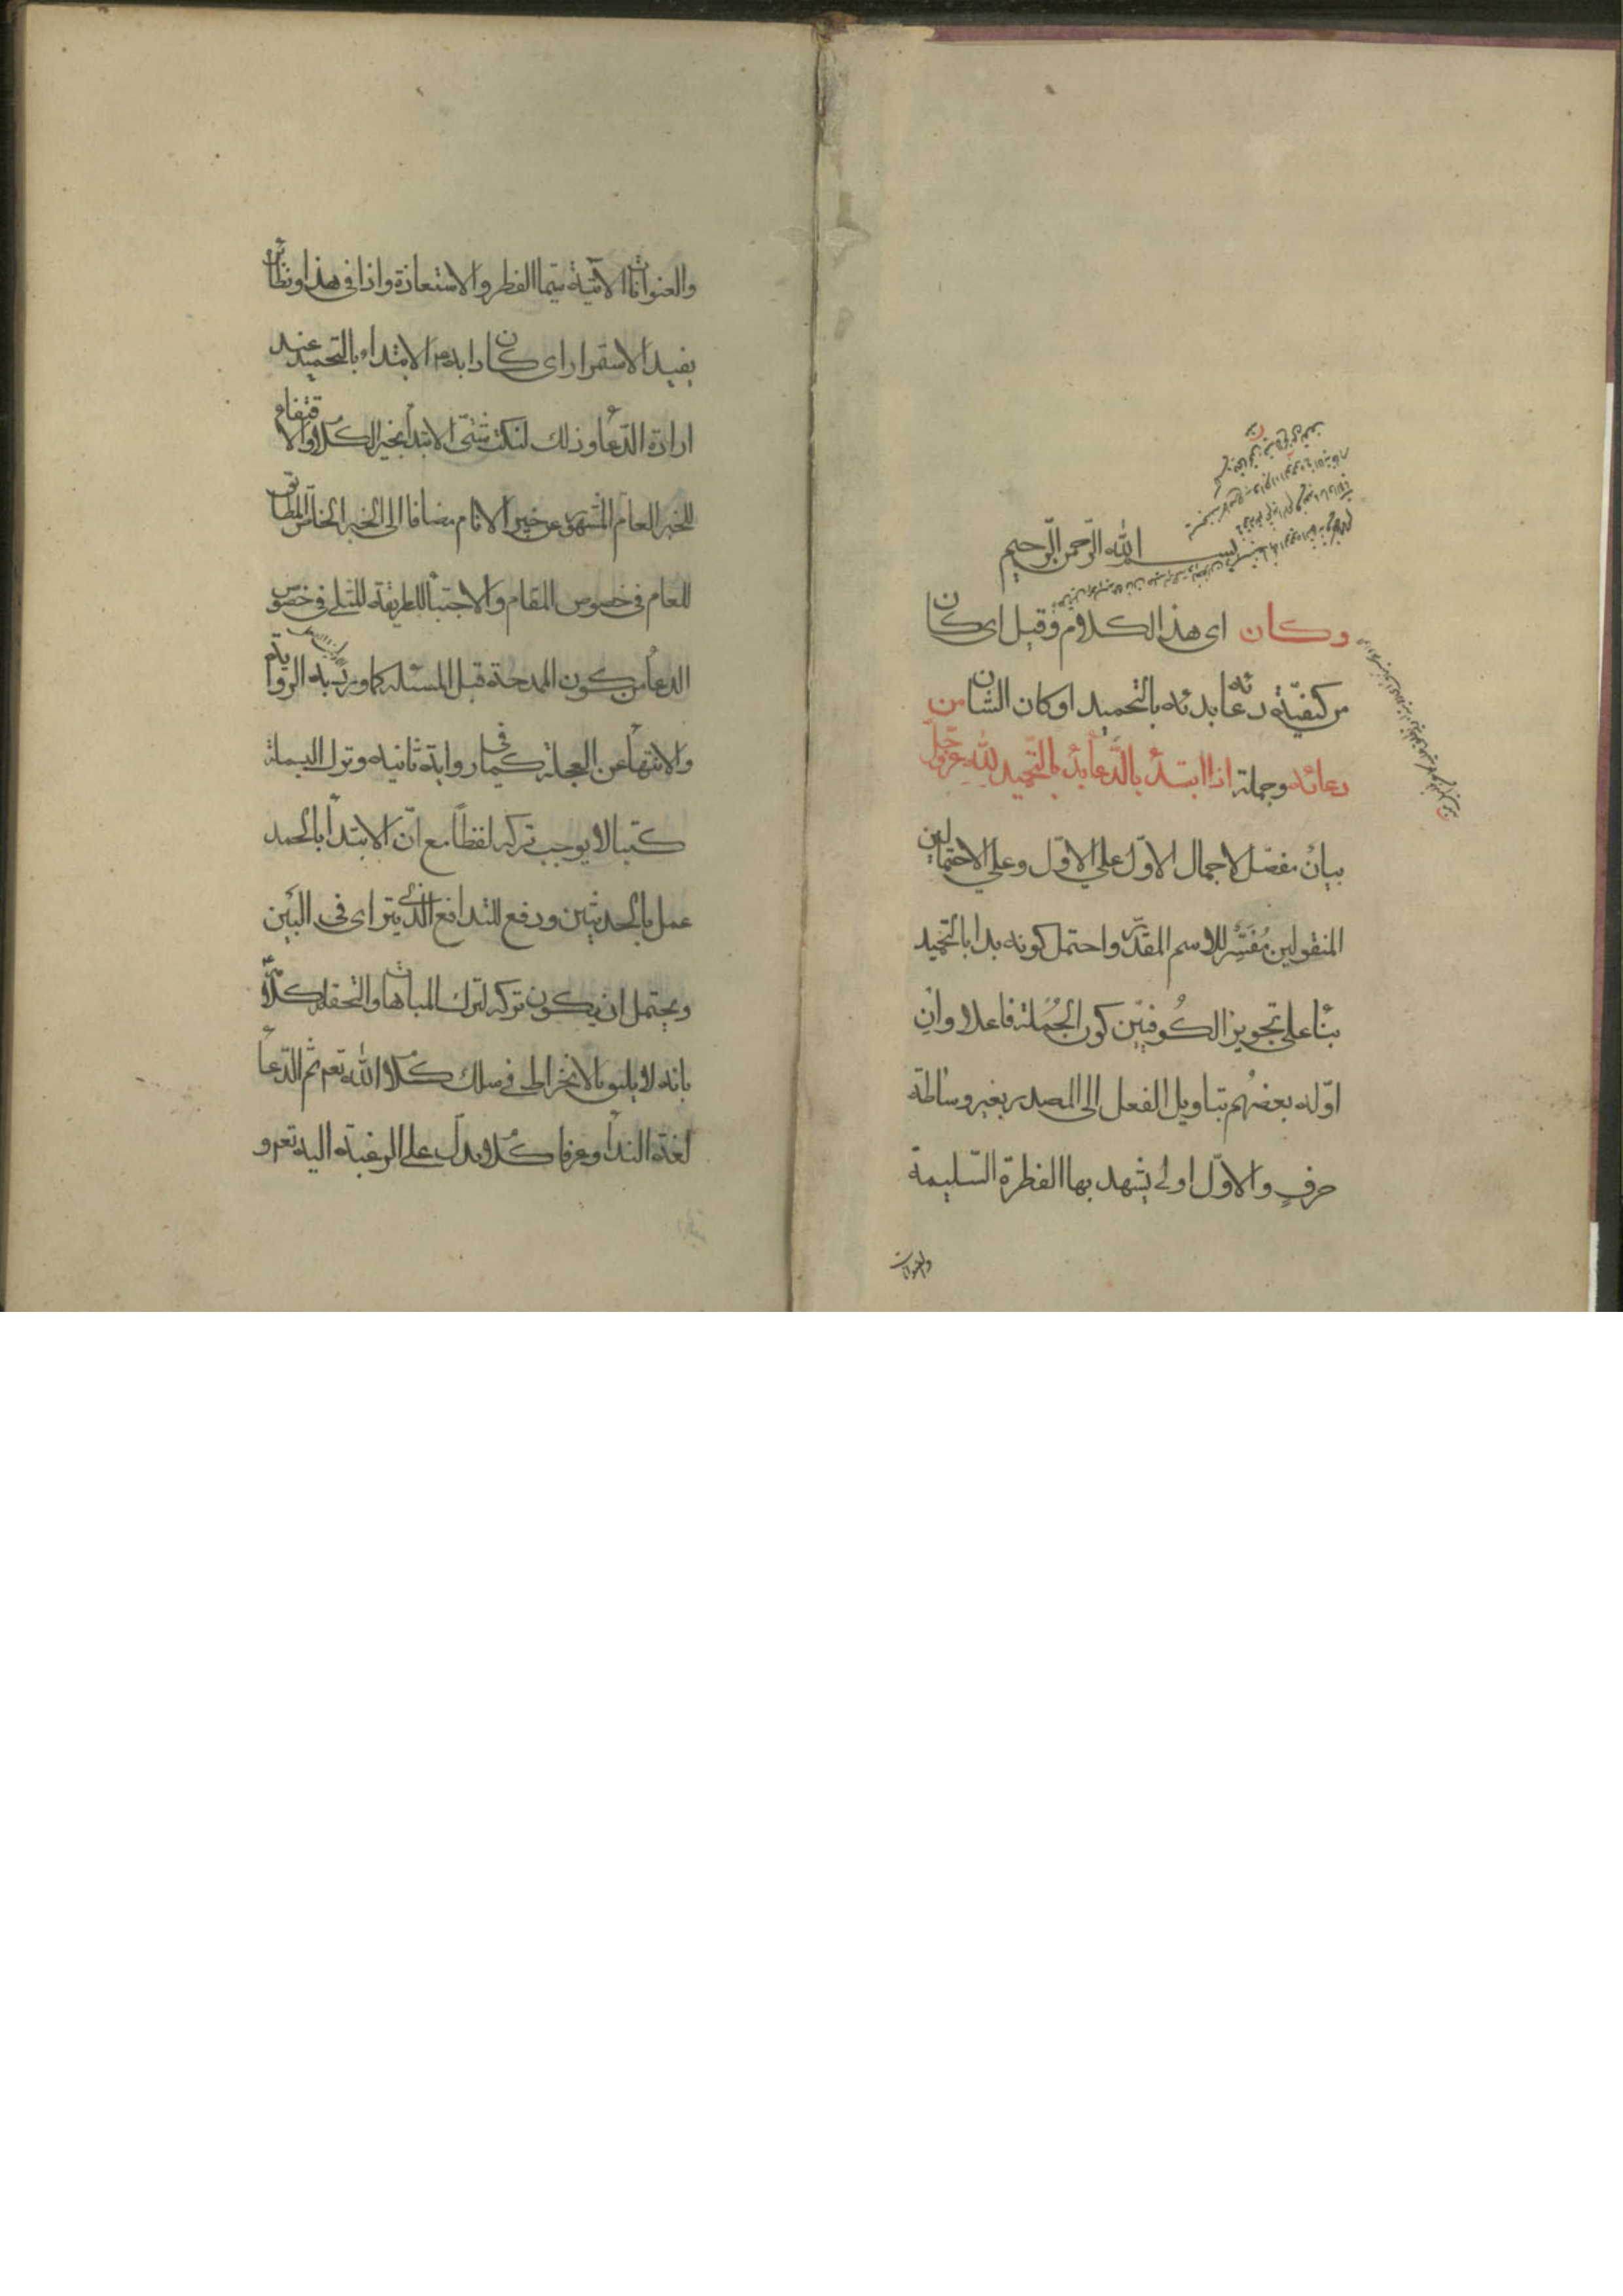 بسم الله الرحمن الرحيم
وكان اى هذا الكلام وقيل اى كان
من كيفيّة دعائه بدئه بالتحميد او كان الشان من
دعائه وجملة اذا ابتدأ بالدّعأ بدأ بالتّحميد لله عزّوجلّ
بيان مفصّل لاجمال الاوّل على الاوّل وعلى الاحتمالين
المنقولين مُفَسّر للاسم المقدّر واحتمل كونه بدا بالتحميد
بنأ على تجويز الكُوفيّين كون الجُملة فاعلا وان
اوّله بعضهُم بتاويل الفعل الى المصدر بغير وساطة
حرفٍ والاوّل اولى يشهد بها الفطرة السّليمة
والعنوانات
والعنوانات الاتية سيّما الفطر والاستعاذة واذا فى هذا ونظائره
يفيد الاستمرار اى كان دابه الابتداء بالتحميد عند
ارادة الدّعأ وذلك لنكت شتّى الابتدأ بخير الكلام والاقتفاء
للخبر العامّ المشهور عن خير الانام مضافا الى الخبر الخاصّ المطابق
للعام فى خصوص المقام والاجتبأ للطريقة المثلى فى خصوص
الدعأ من كون المدحة قبل المسئلة كما ورد به الرواية
والانتهأ عن العجلة كما فى رواية ثانيه وترك البسملة
كتبا لا يوجب تركه لفظاً مع انّ الابتدأ بالحمد
عمل بالحديثين ودفع للتدافع الّذى يترأى فى البين
ويحتمل ان يكون تركه لترك المباهات والتحقير لكلامه
بانه لا يليق بالانخراط فى سلك كلام الله تعم ثم الدّعأ
لغة الندأ وعرفا كلام يدلّ على الرغبة اليه تعم و